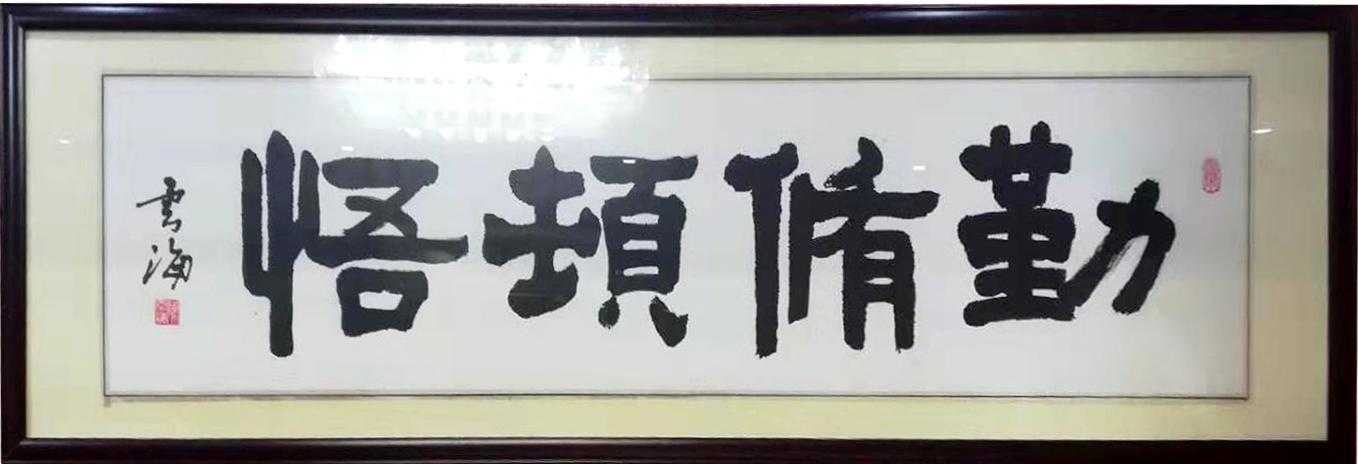 勤脩頓悟
雲海